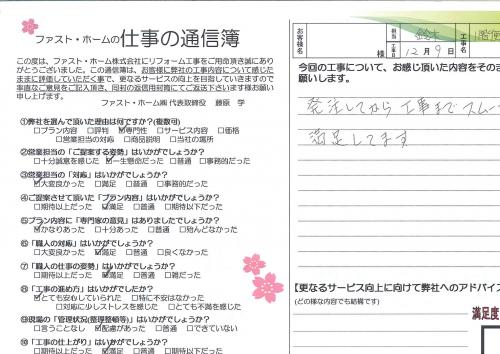 ファスト・ホームの仕事の通信簿
この度は、ファスト・ホーム株式会社にリフォーム工事をご用命頂き誠にあり
がとうございました。この通信簿は、お客様に弊社の工事内容について感じた
ままに評価していただく事で、更なるサービスの向上を目指していきますので
率直なご意見をご記入頂き、同封の返信用封筒にてご返送下さいます様お願い
申し上げます。
ファスト・ホーム㈱ 代表取締役 藤原 学
①弊社を選んで頂いた理由は何ですか?(複数可)
□プラン内容 □評判 ☑専門性 □サービス内容 □価格
□営業担当の対応 □商品説明 □当社の場所
②営業担当の「ご提案する姿勢」はいかがでしょうか?
□十分誠意を感じた ☑一生懸命だった □普通 □事務的だった
③営業担当の「対応」はいかがでしょうか?
☑大変良かった □満足 □普通 □事務的だった
④ご提案させて頂いた「プラン内容」はいかがでしょうか?
□期待以上だった ☑満足 □普通 □期待以下だった
⑤プラン内容に「専門家の意見」はありましたでしょうか?
☑かなりあった □十分あった □普通 □殆んどなかった
⑥「職人の対応」はいかがでしょうか?
□大変良かった ☑満足 □普通 □良くなかった
⑦「職人の仕事の姿勢」はいかがでしょうか?
□期待以上だった ☑満足 □普通 □雑だった
⑧「工事の進め方」はいかがでしたか?
☑とても安心していられた □特に不安はなかった
□対応に少しストレスを感じた □とても不満を感じた
⑨現場の「管理状況(整理整頓等)」はいかがでしょうか?
□言うことなし ☑配慮があった □普通 □できていない
⑩「工事の仕上がり」はいかがでしょうか?
□期待以上だった ☑満足 □普通 □期待以下だった
お客様名
様
担当
鈴木
工事名
工事日
12月9日
今回の工事について、お感じ頂いた内容をその
願いします。
発注してから工事までスムー
満足してます
【更なるサービス向上に向けて弊社へのアドバイス
(どの様な内容でも結構です)
満足度